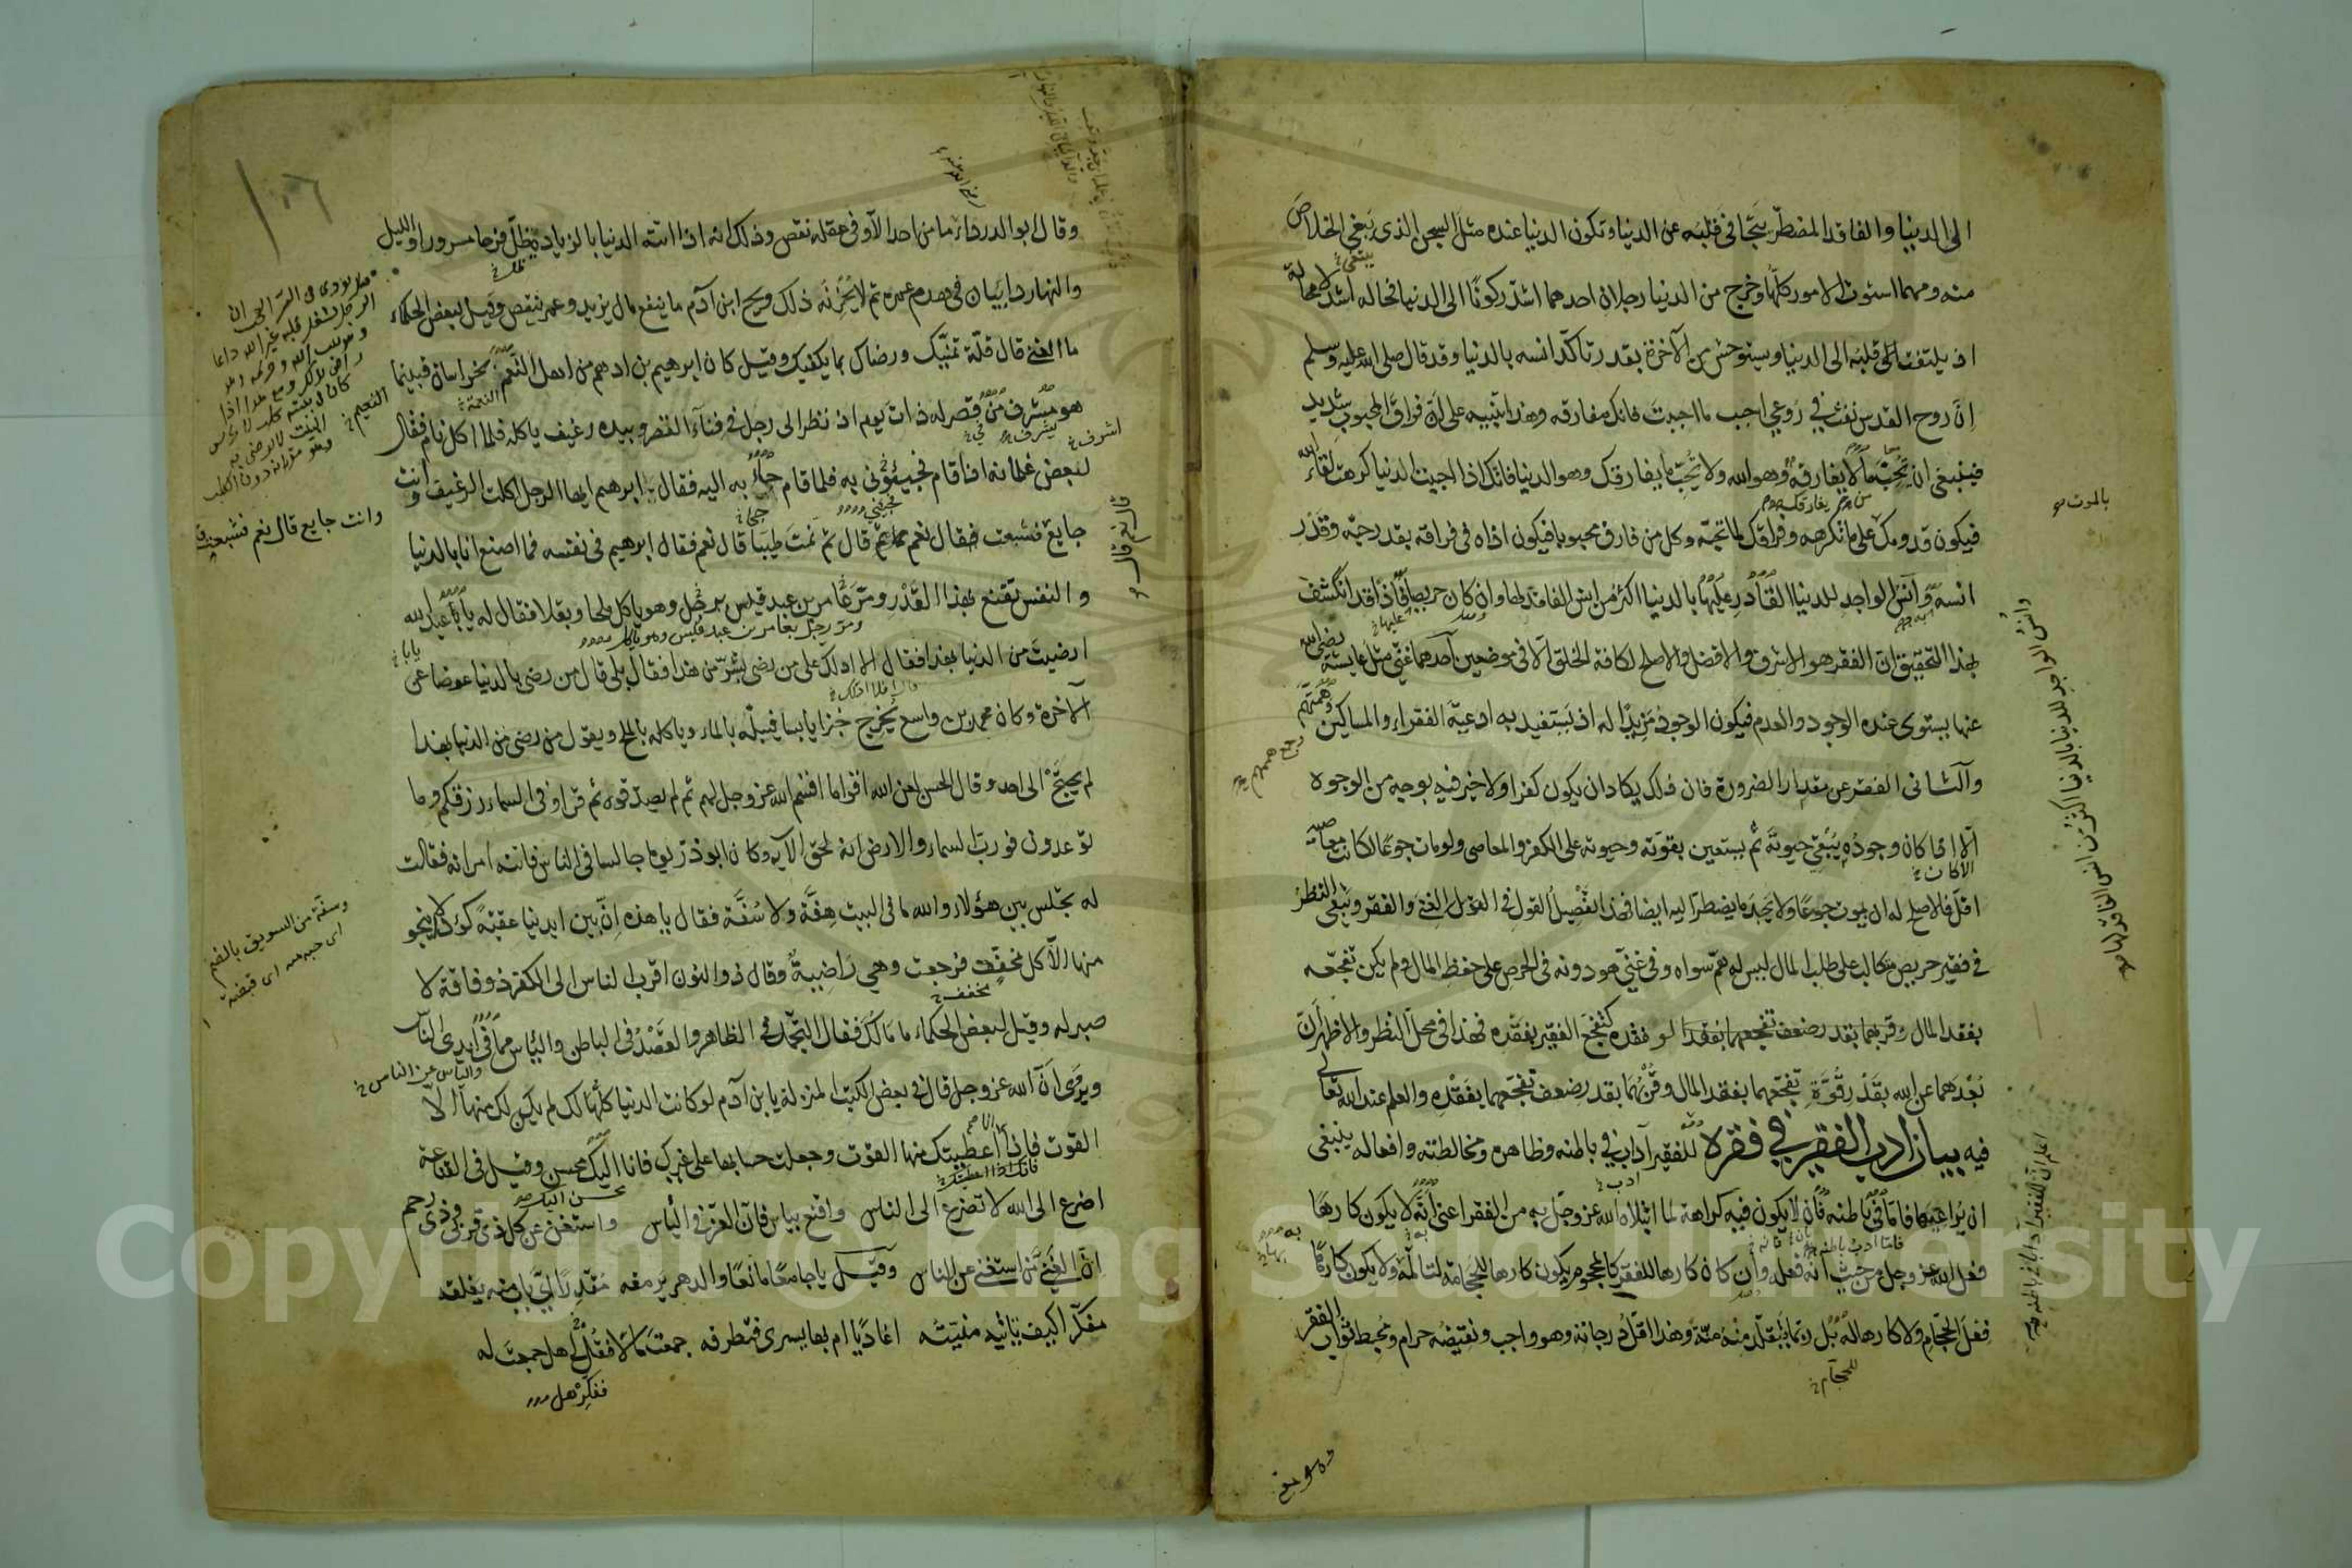 الى الدنيا والفاقد المضطر يتجافى قلبه عن الدنيا وتكون الدنيا عنده مثل السجن الذى يبغى الخلاص
منه ومهما استوت الامور كلها وخرج من الدنيا رجلان احدهما اشد ركونا الى الدنيا فحاله اشد لا محالة
اذ يلتفت قلبه الى الدنيا ويستوحش من الآخرة بقدر تأكد انسه بالدنيا وقد قال صلى الله عليه وسلم
ان روح القدس نفث فى روعى احبب ما احببت فانك مفارقه وهذا تنبيه على ان فراق المحبوب شديد
فينبغى ان تحب ما لا يفارقك وهو الله ولا تحب ما يفارقك وهو الدنيا فانك اذا احببت الدنيا كرهت لقاء الله
فيكون قدومك على ما تكرهه وفراقك لما تحبه وكل من فارق محبوبا فيكون اذاه فى فراقه بقدر حبه وقدر
انسه وانس الواجد للدنيا القادر عليها بالدنيا اكثر من انس الفاقد لها وان كان حريصا فاذا قد انكشف
بهذا التحقيق ان الفقر هو الاشرف والافضل والاصلح لكافة الخلق الا فى موضعين احدهما غنى مثل عايشة رضى الله
عنها يستوى عنده الوجود والعدم فيكون الوجود مزيدا له اذ يستفيد به ادعية الفقراء والمساكين وهمتهم
والثانى الفقر عن مقدار الضرورة فان ذلك يكاد ان يكون كفرا ولا خير فيه بوجه من الوجوه
الا اذا كان وجوده يبقى حيوته ثم يستعين بقوته وحيوته على الكفر والمعاصى ولو مات جوعا لكانت معاصيه
اقل فالاصلح له ان يموت جوعا ولا يجد ما يضطر اليه ايضا فهذا تفصيل القول فى الغنى والفقر وبقى النظر
فى فقير حريص متكالب على طلب المال ليس له هم سواه وفى غنى هو دونه فى الحرص على حفظ المال ولم يكن تفجعه
بفقد المال لو فقده كتفجع الفقير بفقده فهذا فى محل النظر والاظهر ان
بعدهما عن الله بقدر قوة تفجعهما بفقد المال وقربهما بقدر ضعف تفجعهما بفقده والعلم عند الله تعالى
فيه بيان اداب الفقير فى فقره للفقير آداب فى باطنه وظاهره ومخالطته وافعاله ينبغى
ان يراعيها فاما فى باطنه فان لا يكون فيه كراهة لما ابتلاه الله عز وجل به من الفقر اعنى انه لا يكون كارها
فعل الله عز وجل من حيث انه فعله وان كان كارها للفقر كالمحجوم يكون كارها للحجامة لتألمه ولا يكون كارها
فعل الحجام ولا كارها له بل ربما يتقلد منه منة وهذا اقل درجاته وهو واجب ونقيضه حرام ومحبط ثواب الفقر
بالموت
وانس الواجد للدنيا بالدنيا اكثر من انس الفاقد لها
اعلم ان للفقير ادابا فى باطنه
وقال ابو الدرداء ما من احد الا وفى عقله نقص وذلك انه اذا اتته الدنيا بالزيادة يظل فرحا مسرورا والليل
والنهار دايبان فى هدم عمره ثم لا يحزنه ذلك ويح ابن آدم ما ينفع مال يزيد وعمر ينقص وقيل لبعض الحكماء
ما الغنى قال قلة تمنيك ورضاك بما يكفيك وقيل كان ابرهيم بن ادهم من اهل النعم بخراسان فبينما
هو مشرف من قصر له ذات يوم اذ نظر الى رجل فى فناء القصر وبيده رغيف ياكله فلما اكل نام فقال
لبعض غلمانه اذا قام فجيئونى به فلما قام جاء به اليه فقال ابرهيم ايها الرجل اكلت الرغيف وانت
جايع فشبعت فقال نعم قال ثم نمت طيبا قال نعم فقال ابرهيم فى نفسه فما اصنع انا بالدنيا
والنفس تقنع بهذا القدر ومر عامر بن عبد قيس برجل وهو ياكل ملحا وبقلا فقال له يا با عبد الله
ارضيت من الدنيا بهذا فقال الا ادلك على من رضى بشر من هذا فقال بلى قال من رضى بالدنيا عوضا عن
الآخرة وكان محمد بن واسع يخرج خبزا يابسا فيبله بالماء وياكله بالملح ويقول من رضى من الدنيا بهذا
لم يحتج الى احد وقال الحسن لعن الله اقواما اقسم الله عز وجل لهم ثم لم يصدقوه ثم قرا وفى السماء رزقكم وما
توعدون فورب السماء والارض انه لحق الآية وكان ابو ذر يوما جالسا فى الناس فاتته امراته فقالت
له تجلس بين هؤلاء والله ما فى البيت هفة ولا سفة فقال يا هذه ان بين ايدينا عقبة كؤدا لا ينجو
منها الا كل مخف فرجعت وهى راضية وقال ذو النون اقرب الناس الى الكفر ذو فاقة لا
صبر له وقيل لبعض الحكماء ما مالك فقال التجمل فى الظاهر والقصد فى الباطن والياس مما فى ايدى الناس
ويروى ان الله عز وجل قال فى بعض الكتب المنزلة يا بن آدم لو كانت الدنيا كلها لك لم يكن لك منها الا
القوت فاذا اعطيتك منها القوت وجعلت حسابها على غيرك فانا اليك محسن وقيل فى القناعة
اضرع الى الله لا تضرع الى الناس واقنع بياس فان العز فى الياس واستغن عن كل ذى قربى وذى رحم
ان الغنى من استغنى عن الناس وقيل يا جامعا مانعا والدهر يرمقه مقدرا اى باب منه يغلقه
مفكرا كيف تاتيه منيته اغاديا ام بها يسرى فتطرقه جمعت مالا فقل لى هل جمعت له
ففكر هل
وانت جايع قال نعم فشبعت
وسفة من السويق بالضم
اى حبة منه اى قبضة
Copyright © King Saud University